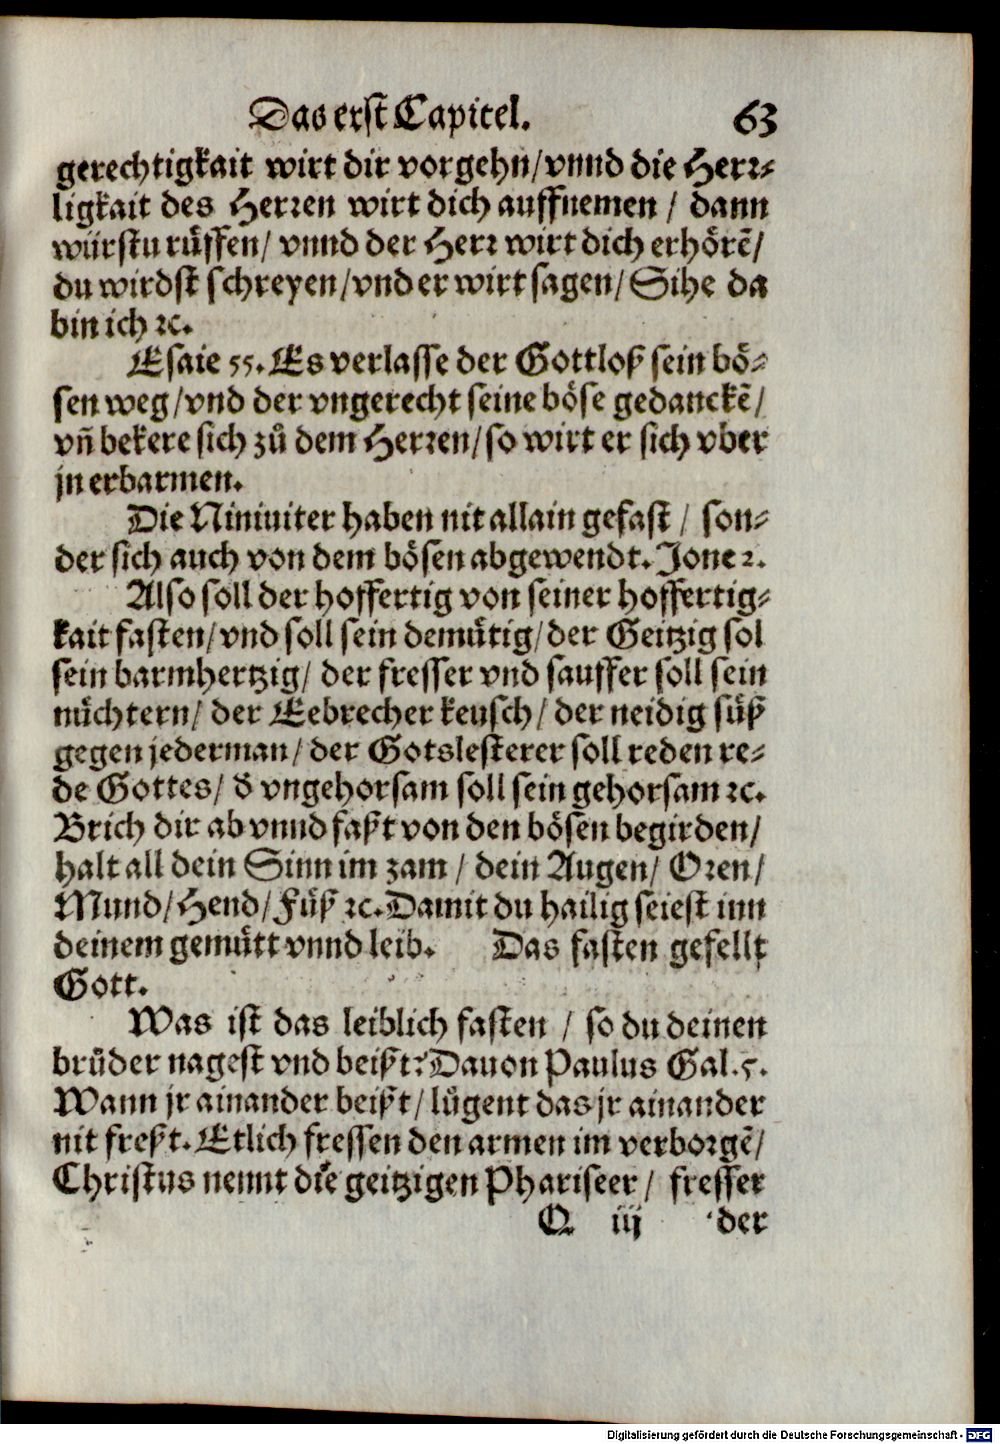 Das erst Capitel. 63
gerechtigkait wirt dir vorgehn/vnnd die Herꝛ-
ligkait des Herꝛen wirt dich auffnemen / dann
würstu rüffen/ vnnd der Herꝛ wirt dich erhörẽ/
du wirdst schreyen/vnd er wirt sagen/ Sihe da
bin ich ꝛc.
Esaie 55. Es verlasse der Gottloß sein bö-
sen weg/vnd der vngerecht seine böse gedanckẽ/
vñ bekere sich zů dem Herꝛen/so wirt er sich vber
jn erbarmen.
Die Niniuiter haben nit allain gefast / son-
der sich auch von dem bösen abgewendt. Jone 2.
Also soll der hoffertig von seiner hoffertig-
kait fasten/vnd soll sein demütig/der Geitzig sol
sein barmhertzig/ der fresser vnd sauffer soll sein
nüchtern/ der Eebrecher keusch/ der neidig süß
gegen jederman/ der Gotslesterer soll reden re-
de Gottes/ ð vngehorsam soll sein gehorsam ꝛc.
Brich dir ab vnnd faßt von den bösen begirden/
halt all dein Sinn im zam / dein Augen/ Oꝛen/
Mund/Hend/Füß ꝛc. Damit du hailig seiest inn
deinem gemütt vnnd leib. Das fasten gefellt
Gott.
Was ist das leiblich fasten / so du deinen
brůder nagest vnd beißt? Dauon Paulus Gal. 5.
Wann jr ainander beißt/ lůgent das jr ainander
nit freßt. Etlich fressen den armen im verboꝛgẽ/
Christus nennt die geitzigen Phariseer/ fresser
Q iij der
Digitalisierung gefördert durch die Deutsche Forschungsgemeinschaft - DFG